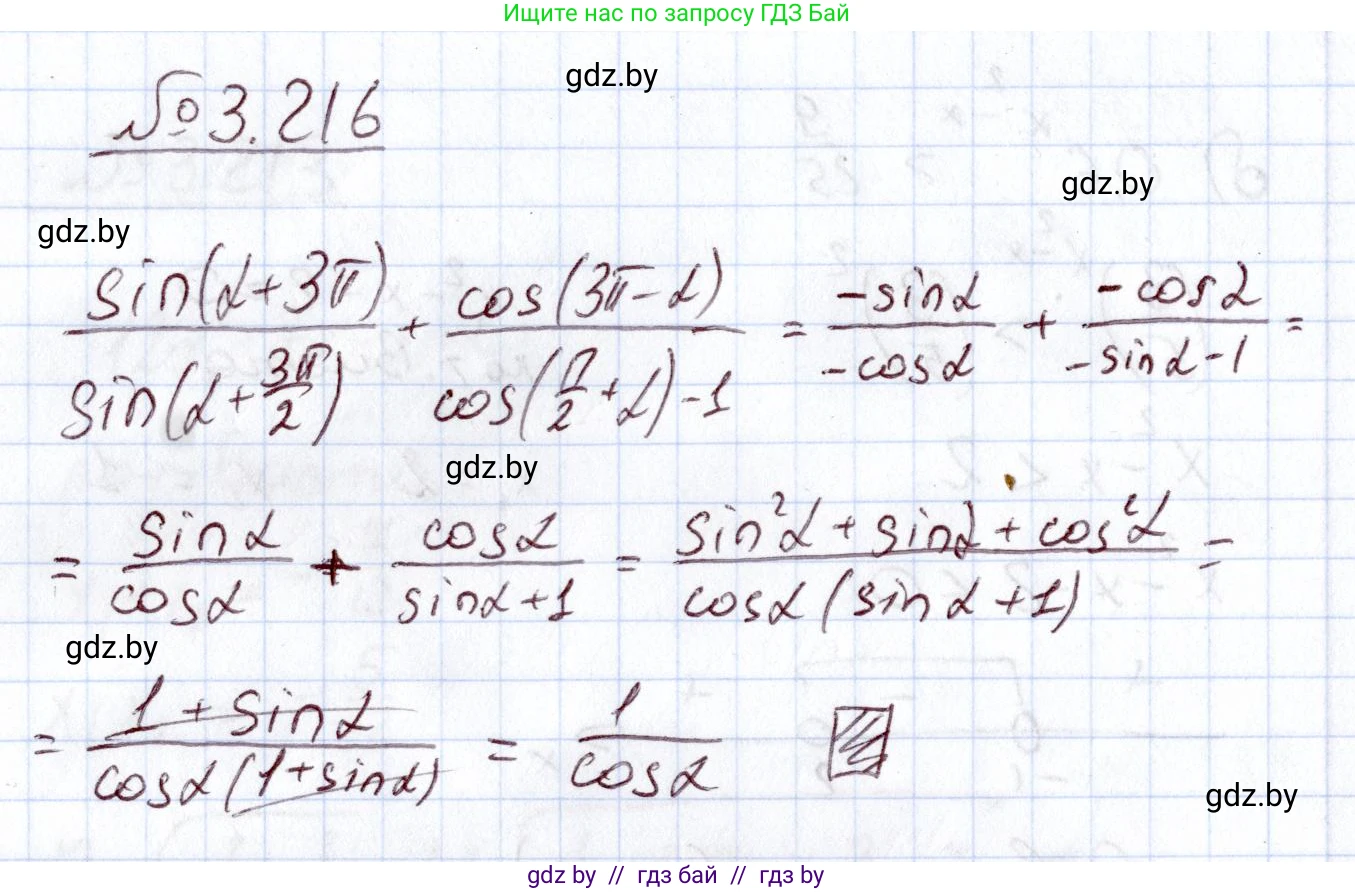 Ищите нас по запросу ГДЗ Бай
gdz.by
№3.216
gdz.by
gdz.by
sin(α+3π)/sin(α+3π/2) + cos(3π-α)/cos(π/2+α)-1 = -sinα/-cosα + -cosα/-sinα-1 =
gdz.by
= sinα/cosα + cosα/sinα+1 = sin²α+sinα+cos²α/cosα(sinα+1) =
gdz.by
= 1+sinα/cosα(1+sinα) = 1/cosα
gdz.by
gdz.by // гдз бай // гдз by